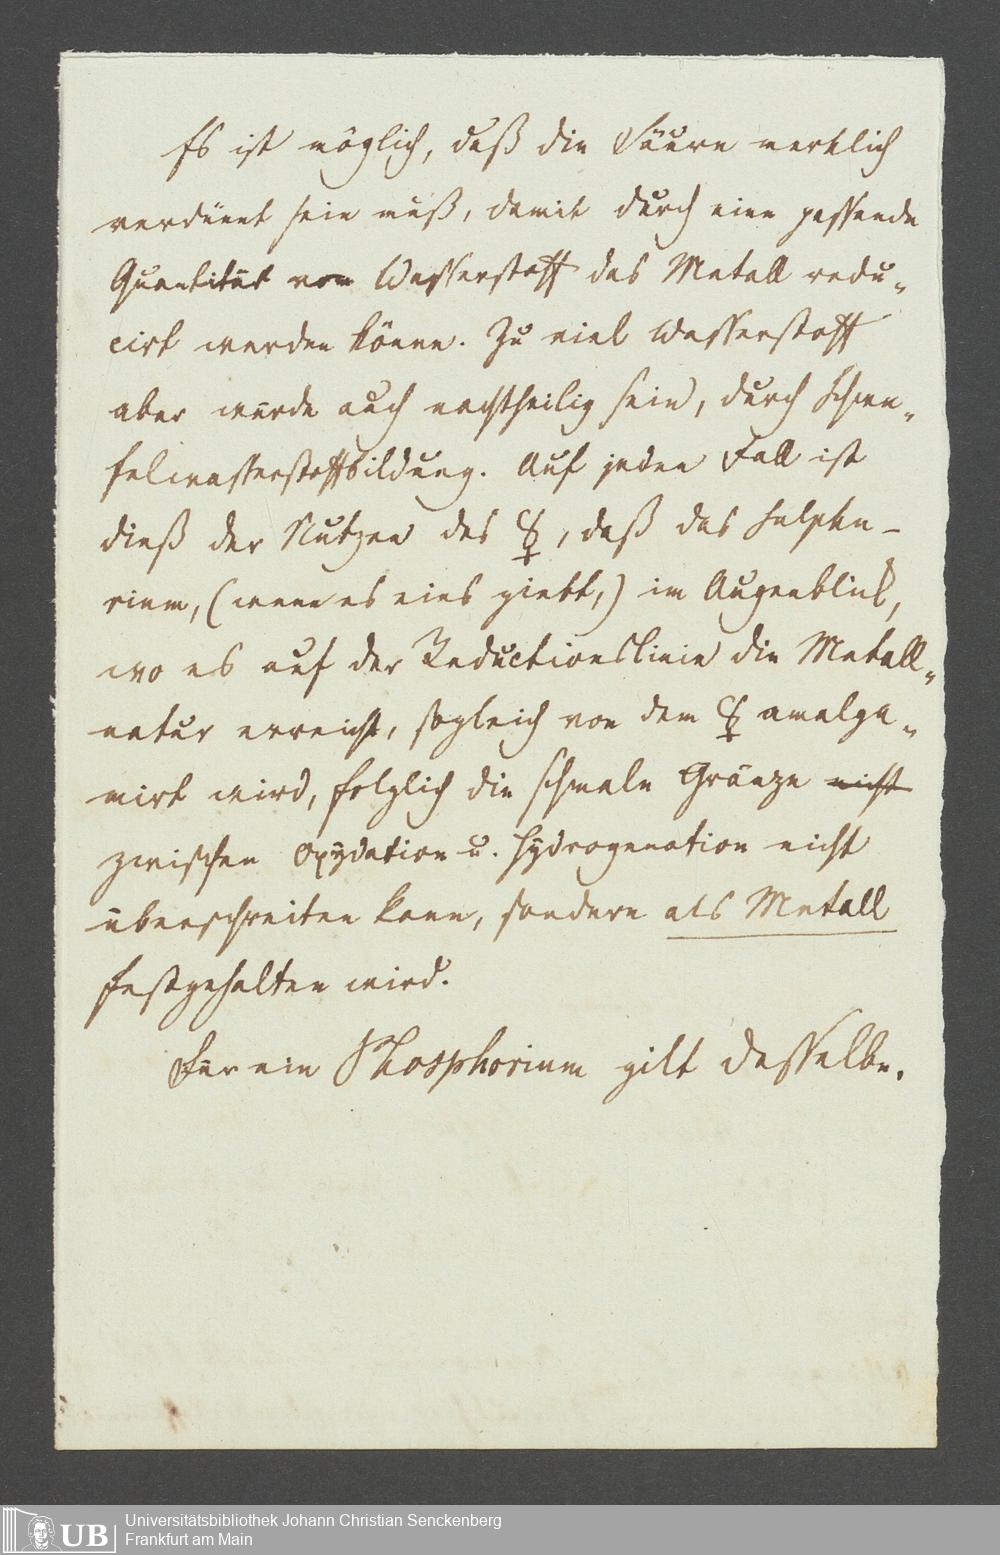 Es ist möglich, daß die Säure merklich
verdünnt sein muß, damit durch eine passende
Quantität von Wasserstoff das Metall redu„
cirt werden könne. Zu viel Wasserstoff
aber würde auch nachtheilig sein, durch Schwe„
felwasserstoffbildung. Auf jeden Fall ist
dieß der Nutzen des ☿, daß das Sulphu-
rium, (wenn es eins giebt,) im Augenblick,
wo es auf der Reductionslinie die Metall„
natur erreicht, sogleich von dem ☿ amalga„
mirt wird, folglich die schmale Gränze nicht
zwischen Oxydation u. Hydrogenation nicht
überschreiten kann, sondern als Metall
festgehalten wird.
Für ein Phosphorium gilt dasselbe.
UB
Universitätsbibliothek Johann Christian Senckenberg
Frankfurt am Main